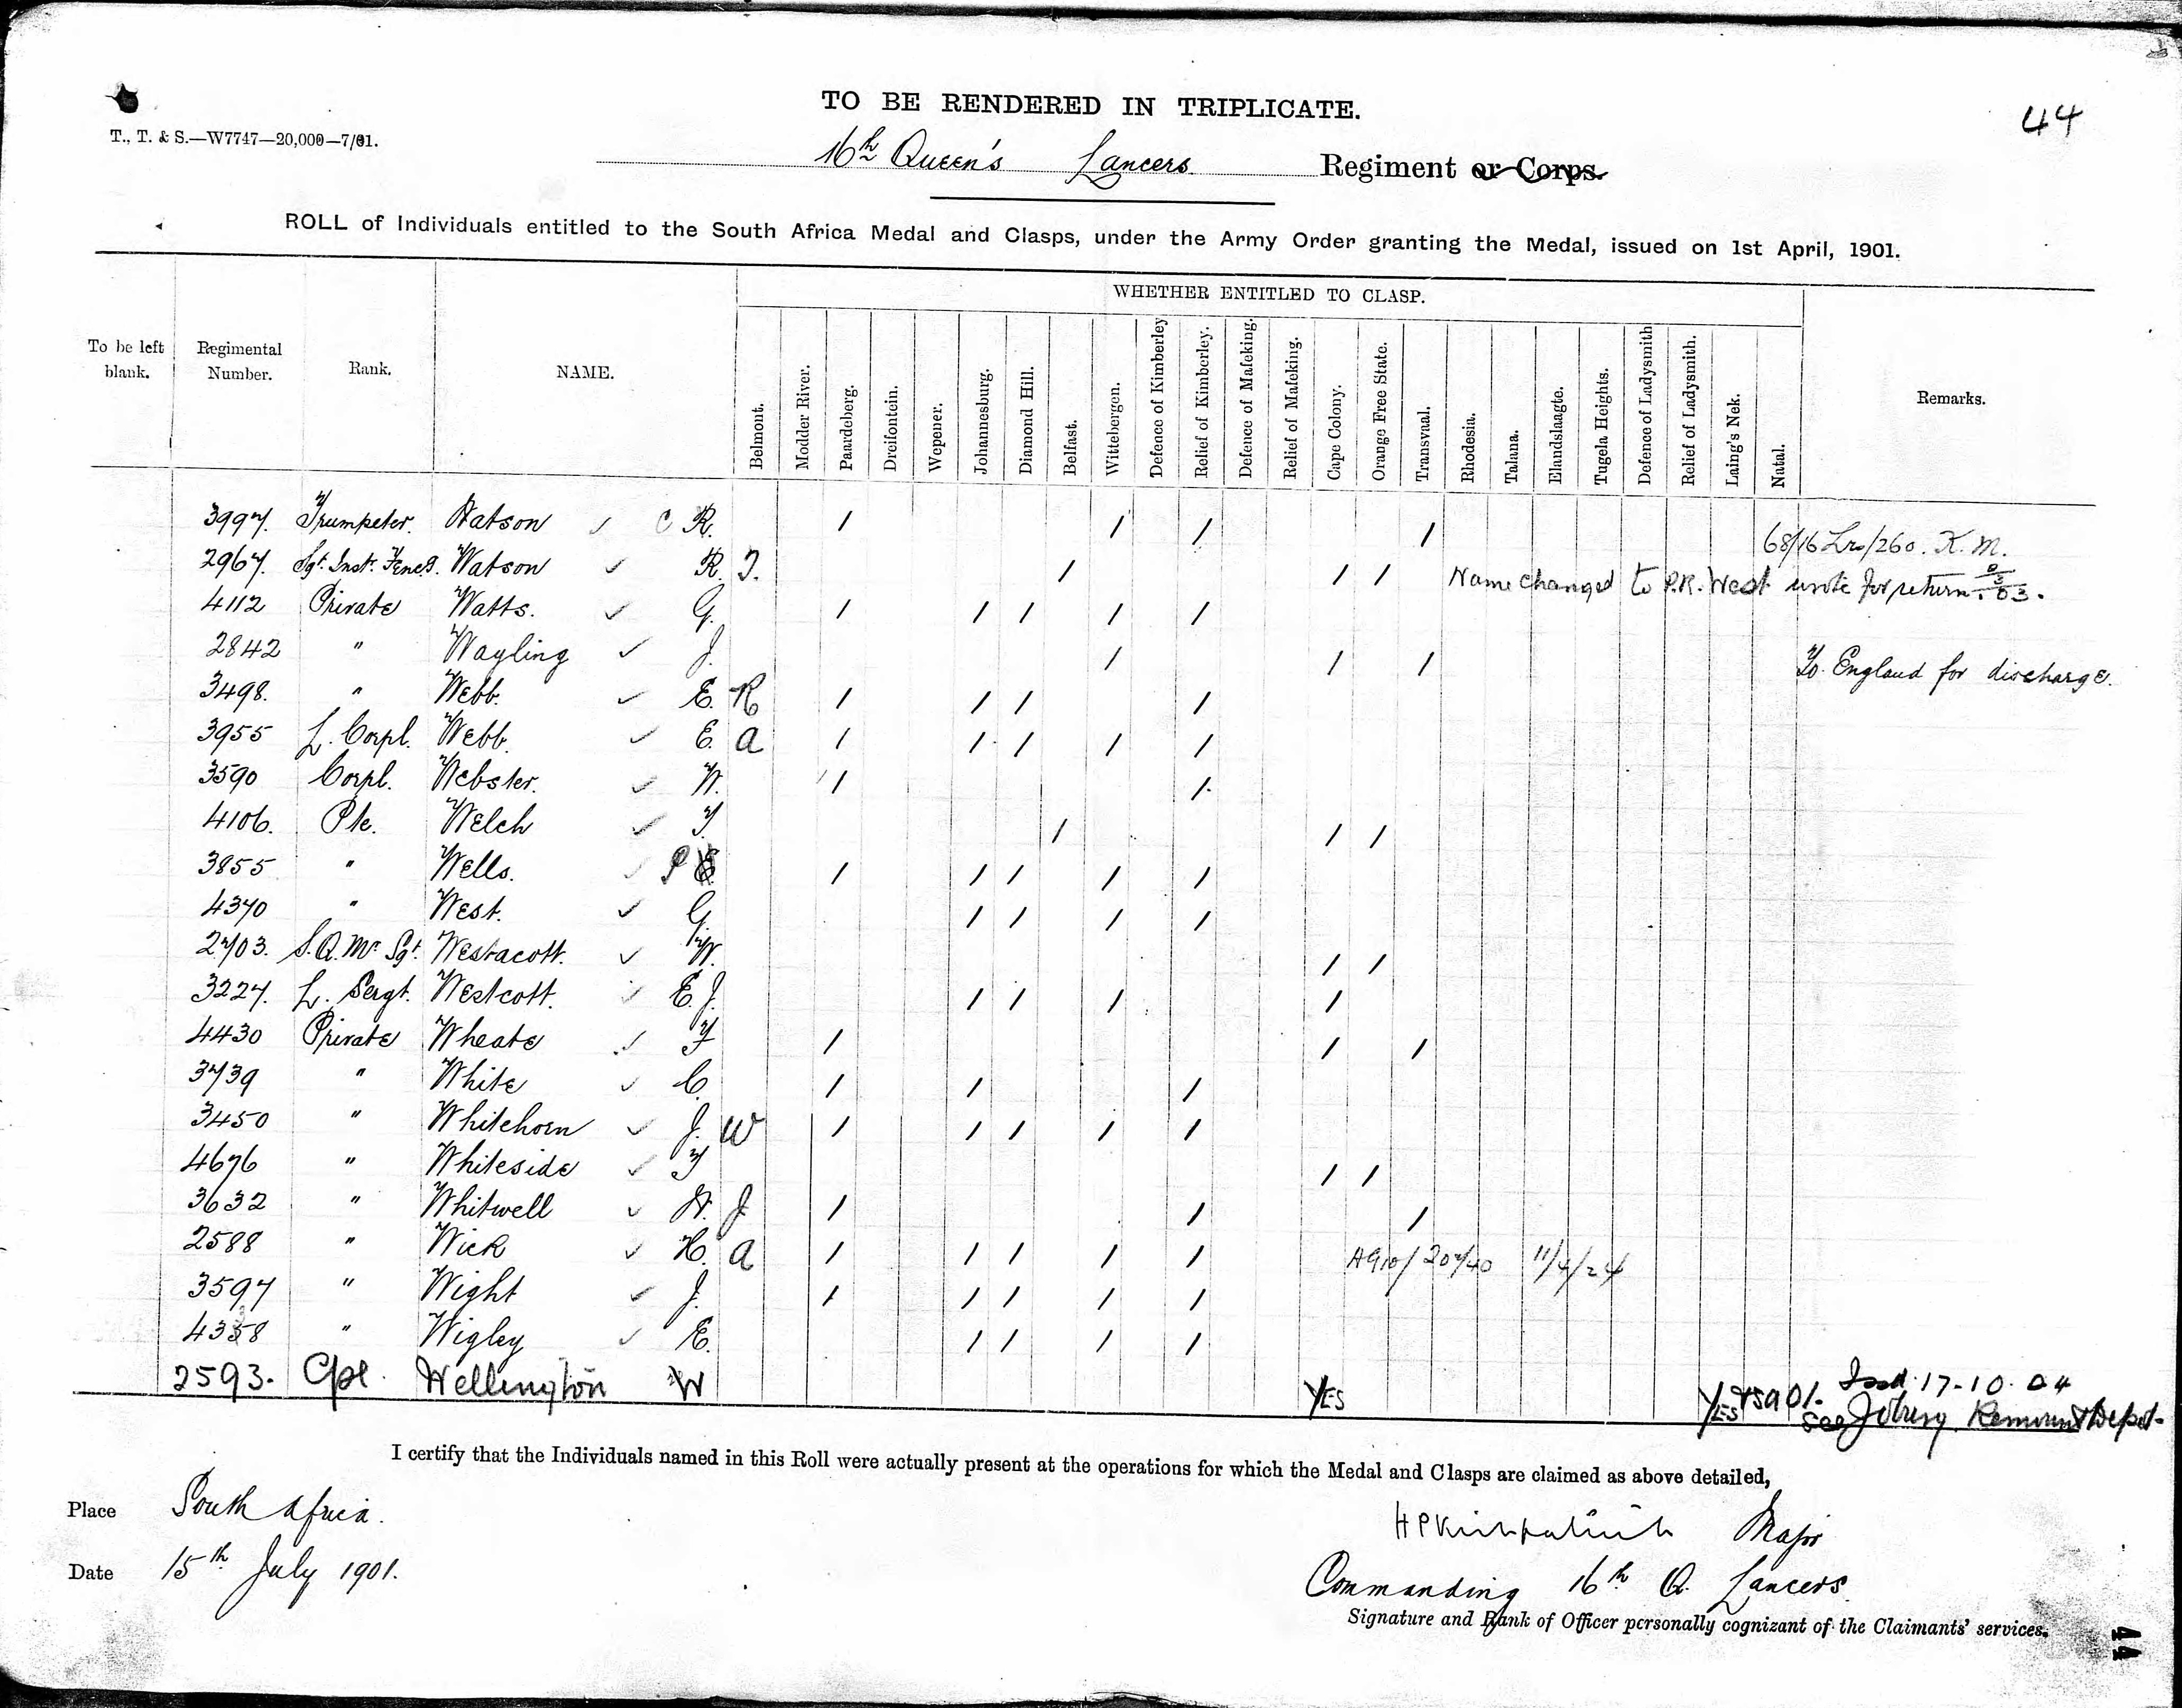 TO BE RENDERED IN TRIPLICATE.
44
T., T. & S.—W7747—20,000—7/01.
16th Queen's Lancers Regiment or Corps.
ROLL of Individuals entitled to the South Africa Medal and Clasps, under the Army Order granting the Medal, issued on 1st April, 1901.
WHETHER ENTITLED TO CLASP.
To be left blank. Regimental Number. Rank. NAME. Belmont. Modder River. Paardeberg. Dreifontein. Wepener. Johannesburg. Diamond Hill. Belfast. Wittebergen. Defence of Kimberley Relief of Kimberley. Defence of Mafeking. Relief of Mafeking. Cape Colony. Orange Free State. Transvaal. Rhodesia. Talana. Elandslaagte. Tugela Heights. Defence of Ladysmith Relief of Ladysmith. Laing's Nek. Natal. Remarks.
3997. Trumpeter. Watson ✓ C R. / / / / 68/16 Lrs/260. K. M.
2967. Sgt. Inst. Fencg. Watson ✓ R. J. / / / Name changed to P.R. West wrote for return
4112 Private Watts. ✓ G. / / / / /
2842 " Wayling ✓ J. / / / To England for discharge.
3498. " Webb. ✓ E. R / / / /
3955 L. Corpl. Webb. ✓ E. A / / / / /
3590 Corpl. Webster. ✓ W. / /
4106. Pte. Welch ✓ T. / / /
3855 " Wells. ✓ P E. / / / / /
4370 " West. ✓ G. / / / /
2703. S.Q.Mr Sgt. Westacott. ✓ W. / /
3227. L. Sergt. Westcott. ✓ E. J. / / / /
4430 Private Wheate ✓ F / / /
3739 " White ✓ C. / / /
3450 " Whitehorn ✓ J. W / / / / /
4676 " Whiteside ✓ T / /
3632 " Whitwell ✓ W. J. / / /
2588 " Wick ✓ H. A / / / / / 11/4/24
3597 " Wight ✓ J. / / / / /
4358 " Wigley ✓ E. / / / /
2593. Cpl. Wellington W YES YES Issd. 17-10-04
See Jo'burg Remount Depot.
I certify that the Individuals named in this Roll were actually present at the operations for which the Medal and Clasps are claimed as above detailed,
Place South Africa.
HPKirkpatrick Major
Date 15th July 1901.
Commanding 16th Q. Lancers.
Signature and Rank of Officer personally cognizant of the Claimants' services.
44